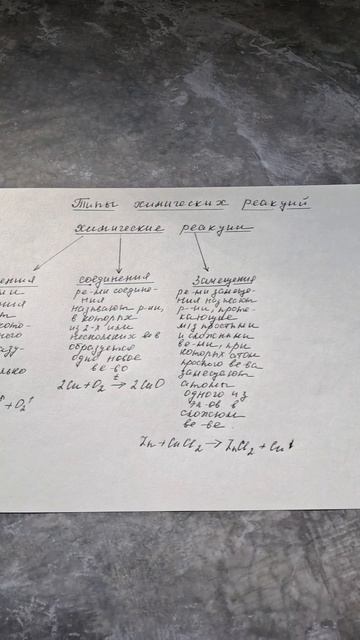 Типы химических реакций
Химические реакции
ения
ми
ния
ют
кото-
ного
азу-
лько
+ O₂↑
соединения
ре-ми соедине-
ния
называют р-ии,
в которых
из 2-х или
нескольких в-в
образуется
одно новое
ве-во
2Cu + O₂ →ᵗ 2CuO
Замещения
ре-ми замеще-
ния называют
р-ии, проте-
кающие
м/з простыми
и сложными
ве-ми, при
которых атом
простого ве-ва
замещают
атомы
одного из
эл-ов в
сложном
ве-ве.
Zn + CuCl₂ → ZnCl₂ + Cu↓